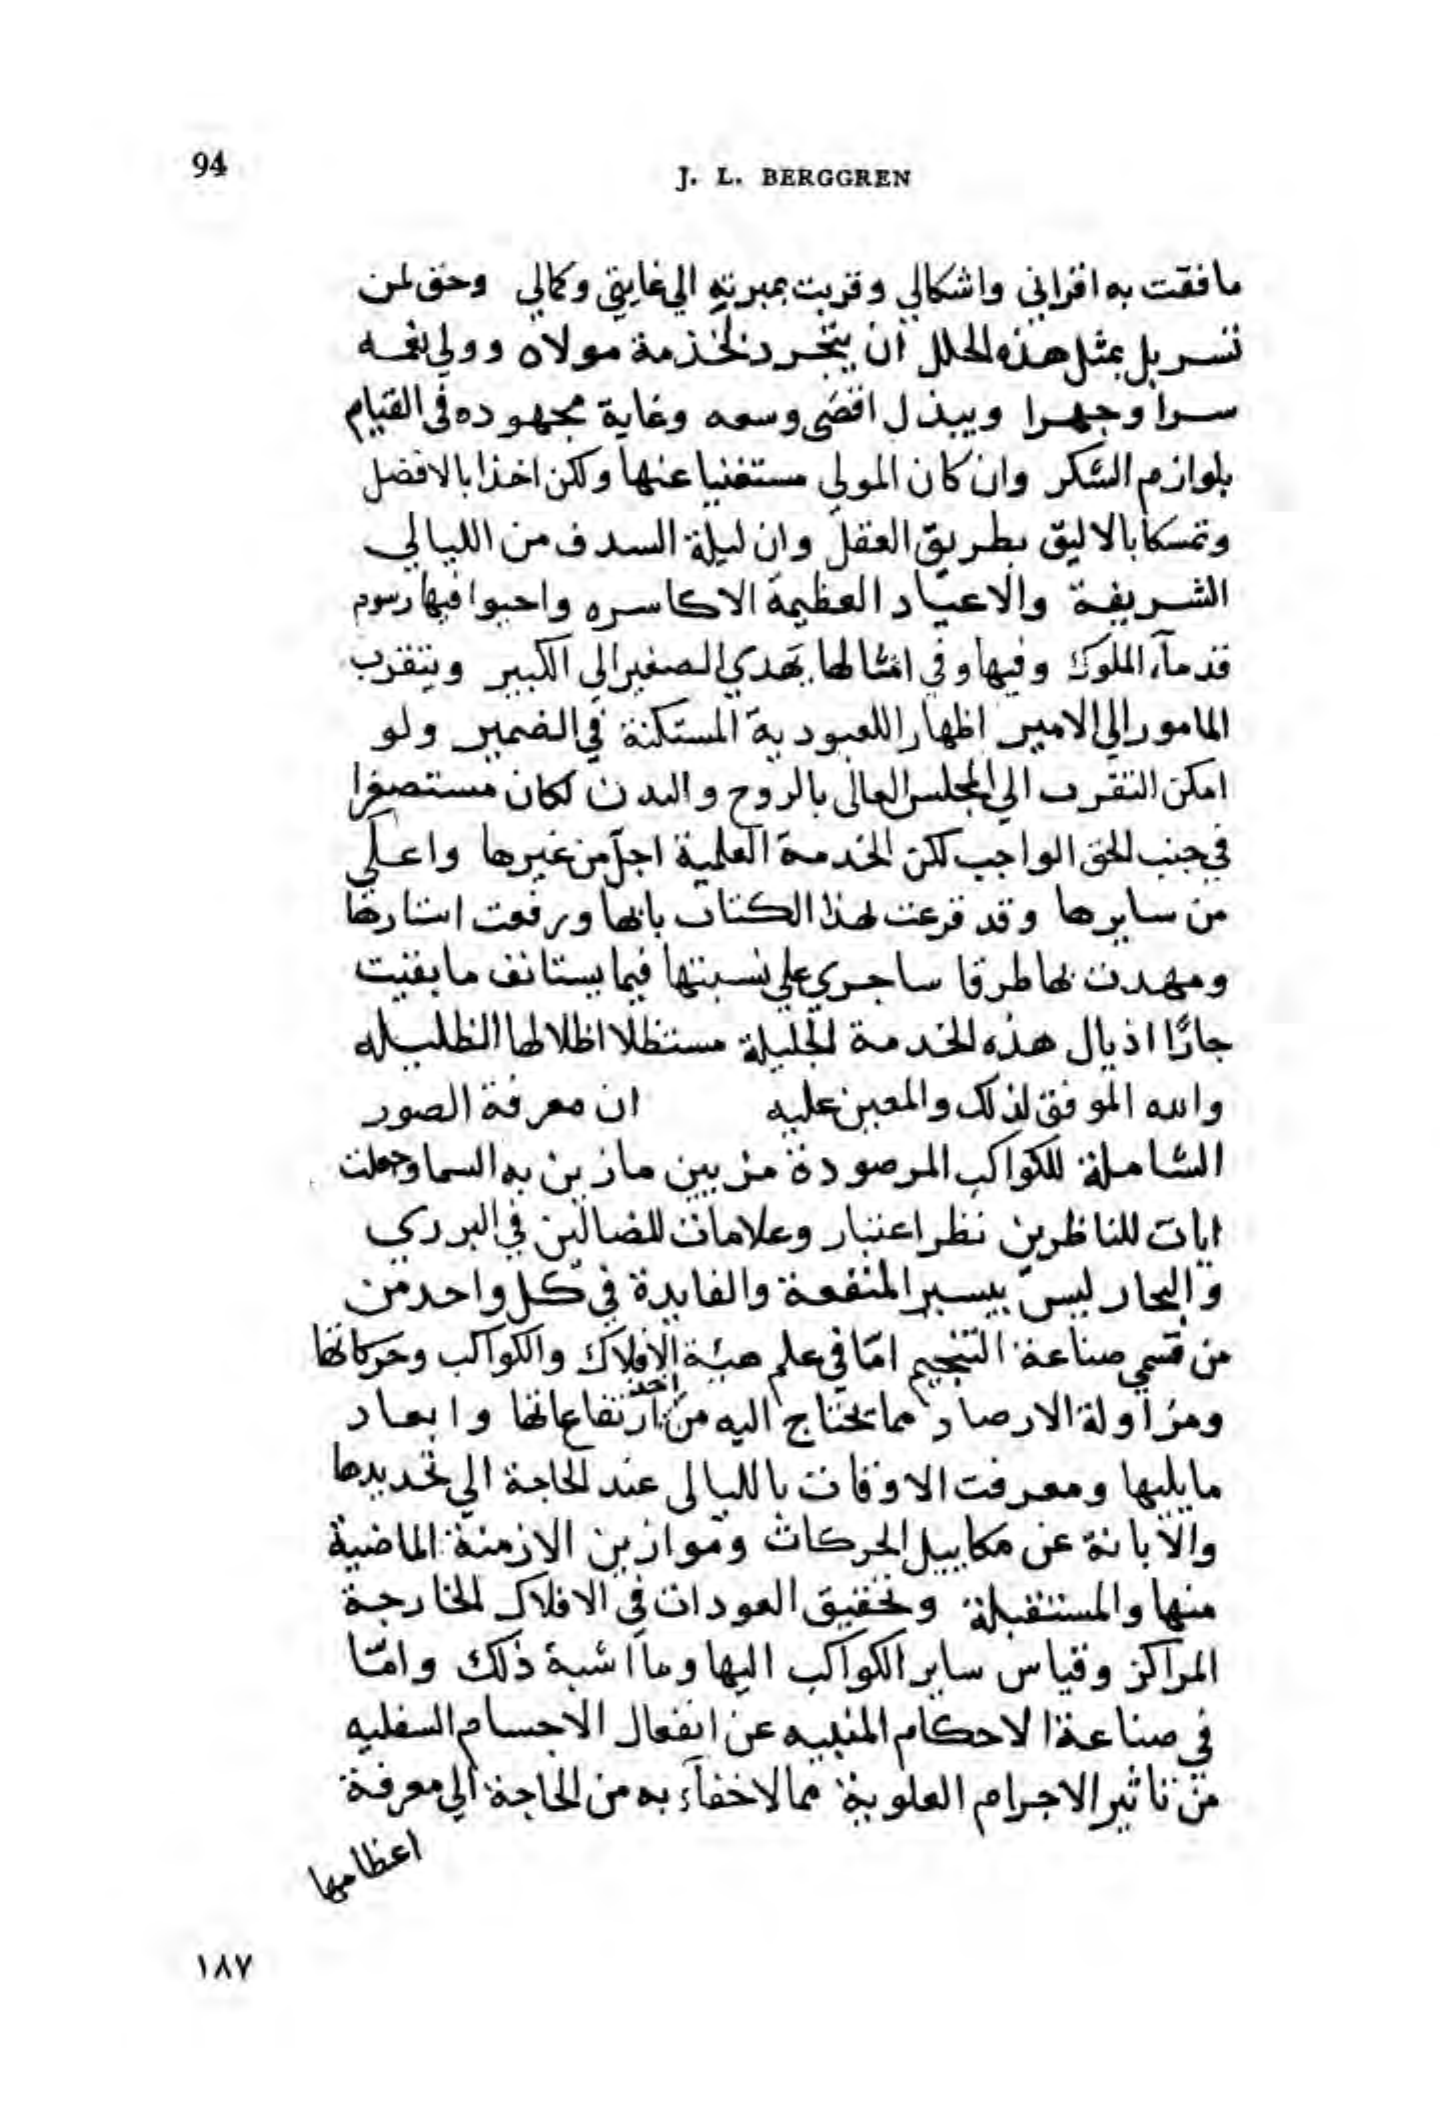 94
J. L. BERGGREN
ما فقت به اقراني واشكالي وقربت بمبرته الي غايتي وكمالي وحق لمن
تسربل بمثل هذه الحلل ان يتجرد لخدمة مولاه وولي نعمه
سرا وجهرا ويبذل اقصى وسعه وغاية مجهوده في القيام
بلوازم الشكر وان كان المولي مستغنيا عنها ولكن اخذا بالافضل
وتمسكا بالاليق بطريق العقل وان ليلة السدف من الليالي
الشريفة والاعياد العظيمة الاكاسره واحبوا فيها رسوم
قدمآء الملوك وفيها وفي امثالها يهدي الصغير الي الكبير ويتقرب
المامور الي الامير اظهارا للعبودية المستكنة في الضمير ولو
امكن التقرب الي المجلس العالى بالروح والبدن لكان مستصغرا
في جنب الحق الواجب لكن الخدمة العلمية اجل من غيرها واعلي
من سايرها وقد قرعت لهذا الكتاب بابها ورفعت استارها
ومهدت لها طرقا ساجري علي نسبتها فيما يستانف ما بقيت
جارًا اذيال هذه الخدمة الجليلة مستظلا اظلالها الظليله
والله الموفق لذلك والمعين عليه ان معرفة الصور
الشاملة للكواكب المرصودة من بين ما زين به السما وجعلت
ايات للناظرين نظر اعتبار وعلامات للضالين في البردي
والبحار ليس بيسير المنفعة والفايدة في كل واحد من
من قسمي صناعة التنجيم امّا في علم هيئة الافلاك والكواكب وحركاتها
ومزاولة الارصاد مما يحتاج اليه من اخذ ارتفاعاتها وابعاد
ما يليها ومعرفت الاوقات بالليالى عند الحاجة الي تحديدها
والابانة عن مكاييل الحركات وموازين الازمنة الماضية
منها والمستقبلة وتحقيق العودات في الافلاك الخارجة
المراكز وقياس ساير الكواكب اليها وما اشبة ذلك وامّا
في صناعة الاحكام المنبيه عن انفعال الاجسام السفليه
من تاثير الاجرام العلوية مما لاخفآء به من الحاجة الي معرفة
اعظامها
١٨٧